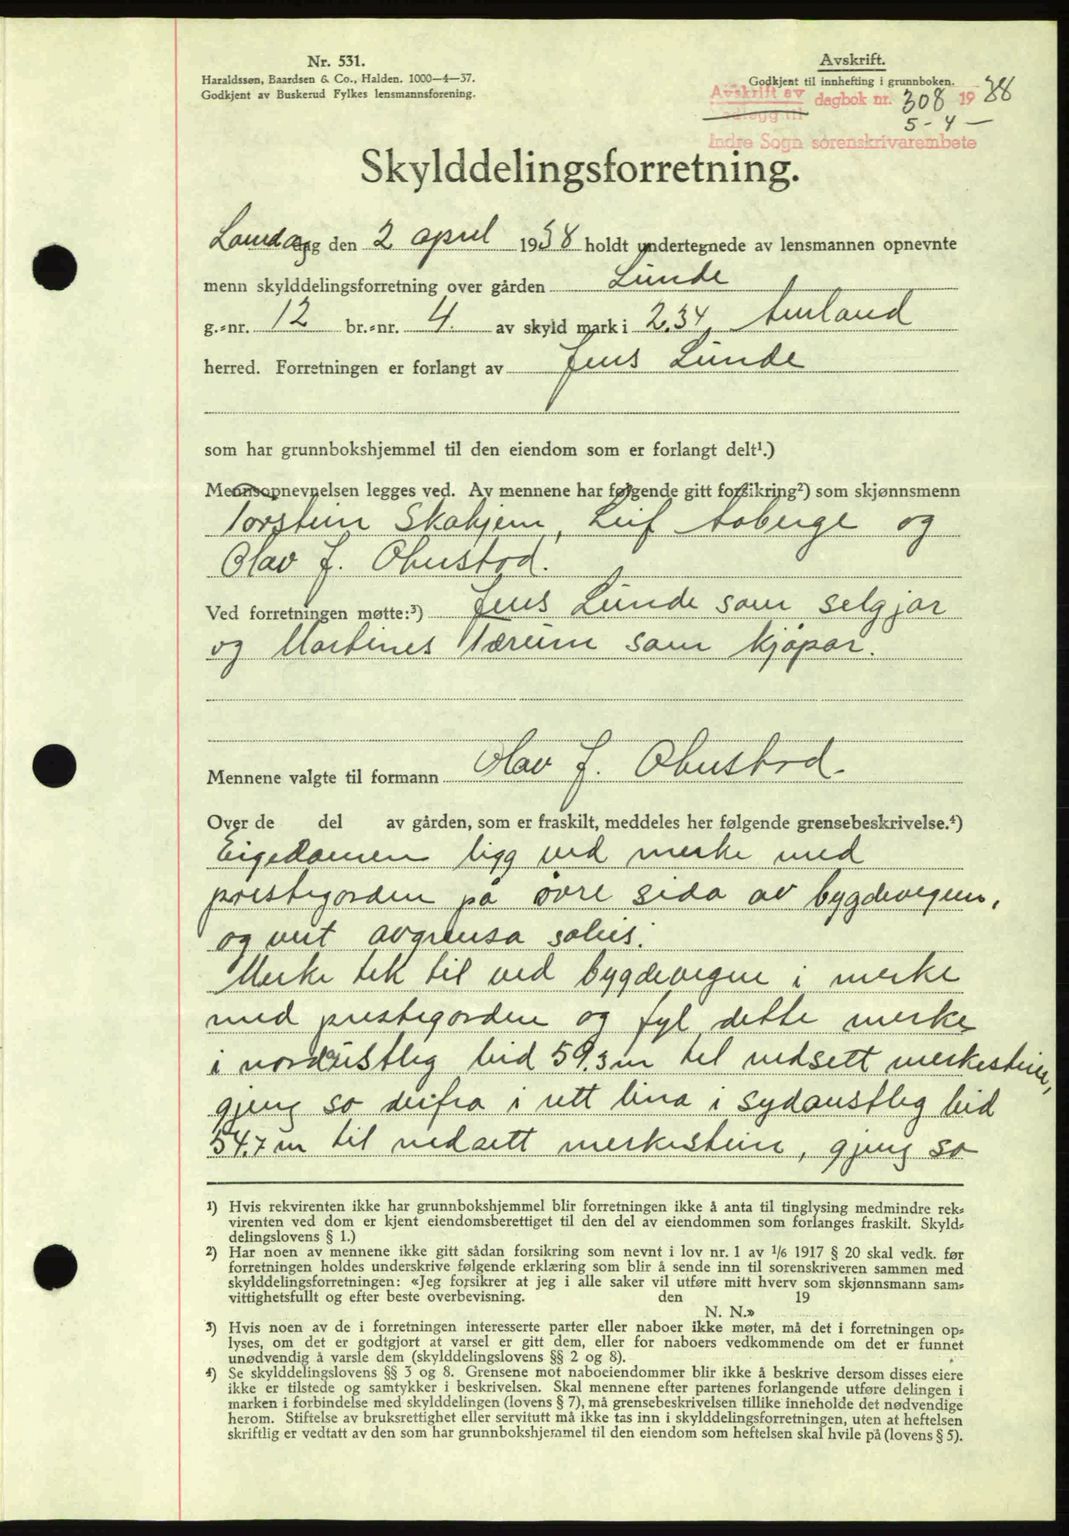 Nr. 531.
Haraldssøn, Baardsen & Co., Halden. 1000—4—37.
Godkjent av Buskerud Fylkes lensmannsforening.
Avskrift.
Godkjent til innhefting i grunnboken.
Avskrift av
dagbok nr. 308 1938
5 - 4 —
Indre Sogn sorenskrivarembete
Skylddelingsforretning.
Laurdag den 2 april 1938 holdt undertegnede av lensmannen opnevnte
menn skylddelingsforretning over gården Lunde
g.-nr. 12 br.-nr. 4. av skyld mark i 2.34, Aurland
herred. Forretningen er forlangt av Jens Lunde
som har grunnbokshjemmel til den eiendom som er forlangt delt¹.)
Mennsopnevnelsen legges ved. Av mennene har følgende gitt forsikring²) som skjønnsmenn
Torstein Skahjem, Leif Aaberge og
Olav J. Ohnstad.
Ved forretningen møtte:³) Jens Lunde som selgjar
og Martines Tærum som kjøpar.
Mennene valgte til formann Olav J. Ohnstad.
Over de del av gården, som er fraskilt, meddeles her følgende grensebeskrivelse.⁴)
Eigedomen ligg ved merke med
prestegorden på øvre sida av bygdevegen,
og vert avgrensa soleis:
Merke tek til ved bygdevegen i merke
med prestegorden og fyl dette merke
i nordaustleg leid 59.3 m til nedsett merkestein,
gjeng so derifra i rett lina i sydaustleg leid
54.7 m til nedsett merkestein, gjeng so
¹) Hvis rekvirenten ikke har grunnbokshjemmel blir forretningen ikke å anta til tinglysing medmindre rek-
virenten ved dom er kjent eiendomsberettiget til den del av eiendommen som forlanges fraskilt. Skyld-
delingslovens § 1.)
²) Har noen av mennene ikke gitt sådan forsikring som nevnt i lov nr. 1 av 1/6 1917 § 20 skal vedk. før
forretningen holdes underskrive følgende erklæring som blir å sende inn til sorenskriveren sammen med
skylddelingsforretningen: «Jeg forsikrer at jeg i alle saker vil utføre mitt hverv som skjønnsmann sam-
vittighetsfullt og efter beste overbevisning. den 19
N. N.»
³) Hvis noen av de i forretningen interesserte parter eller naboer ikke møter, må det i forretningen op-
lyses, om det er godtgjort at varsel er gitt dem, eller for naboers vedkommende om det er funnet
unødvendig å varsle dem (skylddelingslovens §§ 2 og 8).
⁴) Se skylddelingslovens §§ 3 og 8. Grensene mot naboeiendommer blir ikke å beskrive dersom disses eiere
ikke er tilstede og samtykker i beskrivelsen. Skal mennene efter partenes forlangende utføre delingen i
marken i forbindelse med skylddelingen (lovens § 7), må grensebeskrivelsen tillike inneholde det nødvendige
herom. Stiftelse av bruksrettighet eller servitutt må ikke tas inn i skylddelingsforretningen, uten at heftelsen
skriftlig er vedtatt av den som har grunnbokshjemmel til den eiendom som heftelsen skal hvile på (lovens § 5).